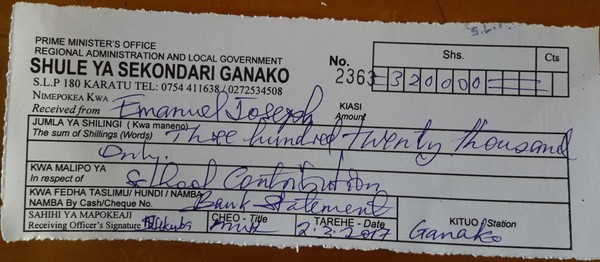 PRIME MINISTER'S OFFICE
REGIONAL ADMINISTRATION AND LOCAL GOVERNMENT
SHULE YA SEKONDARI GANAKO
S.L.P 180 KARATU TEL: 0754 411638 / 0272534508
No. 2363
Shs. Cts
320000
NIMEPOKEA KWA
Received from Emanuel Joseph
KIASI
Amount
JUMLA YA SHILINGI ( Kwa maneno)
The sum of Shillings (Words) Three hundred twenty thousand
Only.
KWA MALIPO YA
In respect of School Contribution
KWA FEDHA TASLIMU/ HUNDI / NAMBA
NAMBA By Cash/Cheque No. Bank Statement
SAHIHI YA MAPOKEAJI
Receiving Officer's Signature
CHEO - Title
TAREHE - Date
2.3.2017
KITUO /Station
Ganako